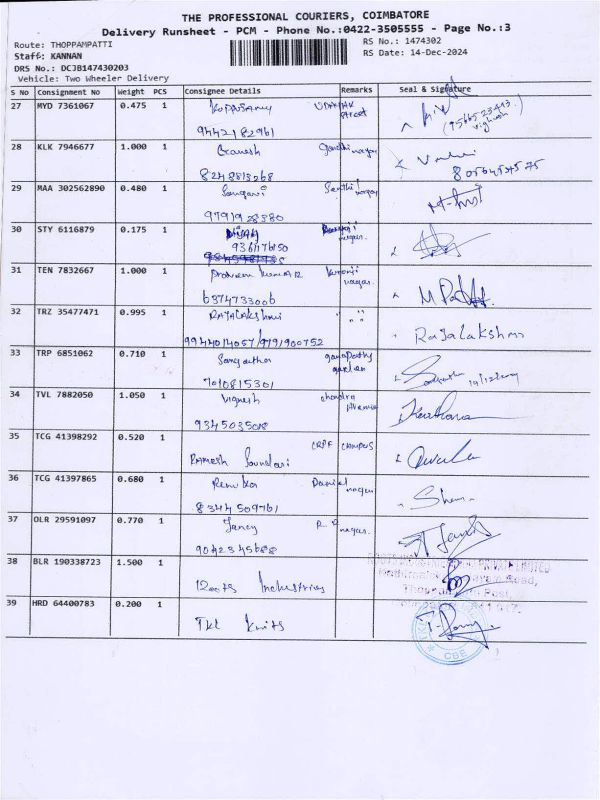 THE PROFESSIONAL COURIERS, COIMBATORE
Delivery Runsheet - PCM - Phone No.:0422-3505555 - Page No.:3
Route: THOPPAMPATTI
RS No.: 1474302
Staff: KANNAN
RS Date: 14-Dec-2024
DRS No.: DCJB147430203
Vehicle: Two Wheeler Delivery
S No Consignment No Weight PCS Consignee Details Remarks Seal & Signature
27 MYD 7361067 0.475 1
street
9442182961
28 KLK 7946677 1.000 1 Ganesh Gandhi nagar
8248813268
29 MAA 302562890 0.480 1 Sangavi Senthil nagar
9791928380
30 STY 6116879 0.175 1
nagar.
31 TEN 7832667 1.000 1 Praveen Kumar
nagar.
6374733006
32 TRZ 35477471 0.995 1 RAJALAKSHMI " "
Rajalakshmi
9944014057/9791900752
33 TRP 6851062 0.710 1 Sangeetha ganapathy
garden
7010815301
34 TVL 7882050 1.050 1 Vignesh chandra
9345035018
35 TCG 41398292 0.520 1 CRPF CAMPUS
Ramesh Soundari
36 TCG 41397865 0.680 1 Renuka Daniel
nagar
8344509761
37 OLR 29591097 0.770 1 Jancy
nagar.
9042345688
38 BLR 190338723 1.500 1
Industries
39 HRD 64400783 0.200 1
TKT Knits
CBE